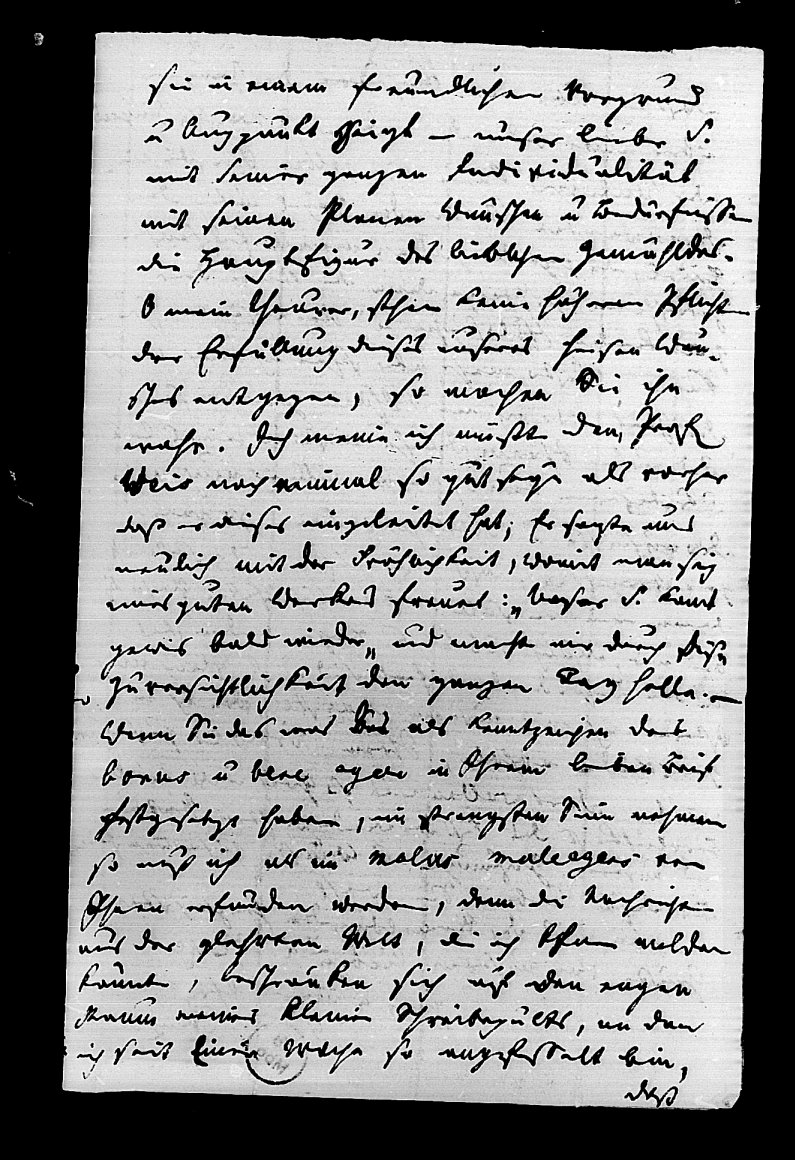 sie in einem freundlichen Vorgrund
u Augpunkt zeigt – unser lieber S.
mit seiner ganzen Individualität
mit seinen Planen Wünschen u Bedürfnissen
die Hauptfigur des lieblichen Gemähldes.
O mein Theurer, stehen keine höheren Pflichten
der Erfüllung dieses unseres heisen Wun-
sches entgegen, so machen Sie ihn
wahr. Ich meine ich müßte dem Prof.
Weis noch einmal so gut seyn als vorher
daß er dieses eingeleitet hat; Er sagte uns
neulich mit der Fröhlichkeit, womit man sich
eines guten Werkes freuet: „Unser S. komt
gewis bald wieder„ und machte mir durch diese
Zuversichtlichkeit den ganzen Tag helle. –
Wenn Sie das was Sie als Kennzeichen des
bonus u bene agere in Ihrem lieben Brief
festgesetzt haben, im strengsten Sinn nehmen
so muß ich als ein malus male agens von
Ihnen erfunden werden, denn die Nachrichten
aus der gelehrten Welt, die ich Ihnen melden
könnte, beschränken sich auf den engen
Raum meines kleinen Schreibepults, an den
ich seit Einer Woche so angefesselt bin,
daß